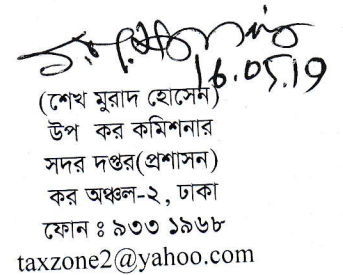 16.05.19
(শেখ মুরাদ হোসেন)
উপ কর কমিশনার
সদর দপ্তর(প্রশাসন)
কর অঞ্চল-২, ঢাকা
ফোন ঃ ৯৩৩ ১৯৬৮
taxzone2@yahoo.com